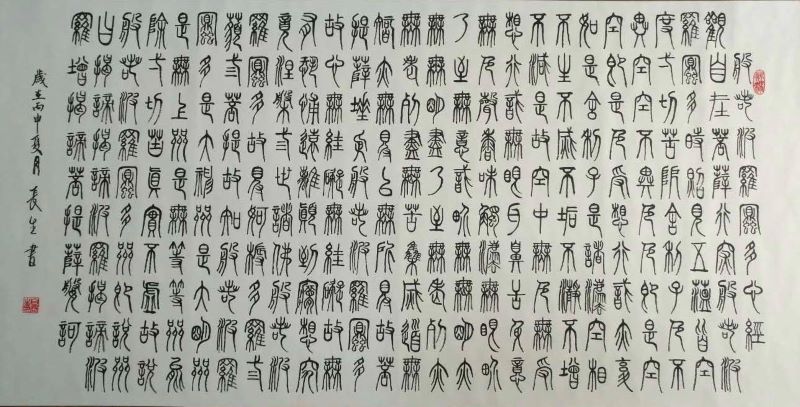 般若波羅蜜多心經
觀自在菩薩行深般若波
羅蜜多時照見五蘊皆空
度一切苦厄舍利子色不
異空空不異色色即是空
空即是色受想行識亦復
如是舍利子是諸法空相
不生不滅不垢不淨不增
不減是故空中無色無受
想行識無眼耳鼻舌身意
無色聲香味觸法無眼界
乃至無意識界無無明亦
無無明盡乃至無老死亦
無老死盡無苦集滅道無
智亦無得以無所得故菩
提薩埵依般若波羅蜜多
故心無罣礙無罣礙故無
有恐怖遠離顛倒夢想究
竟涅槃三世諸佛般若波
羅蜜多故得阿耨多羅三
藐三菩提故知般若波羅
蜜多是大神咒是大明咒
是無上咒是無等等咒能
除一切苦真實不虛故說
般若波羅蜜多咒即說咒
曰揭諦揭諦波羅揭諦波
羅僧揭諦菩提薩婆訶
歲在丙申夏月長生書